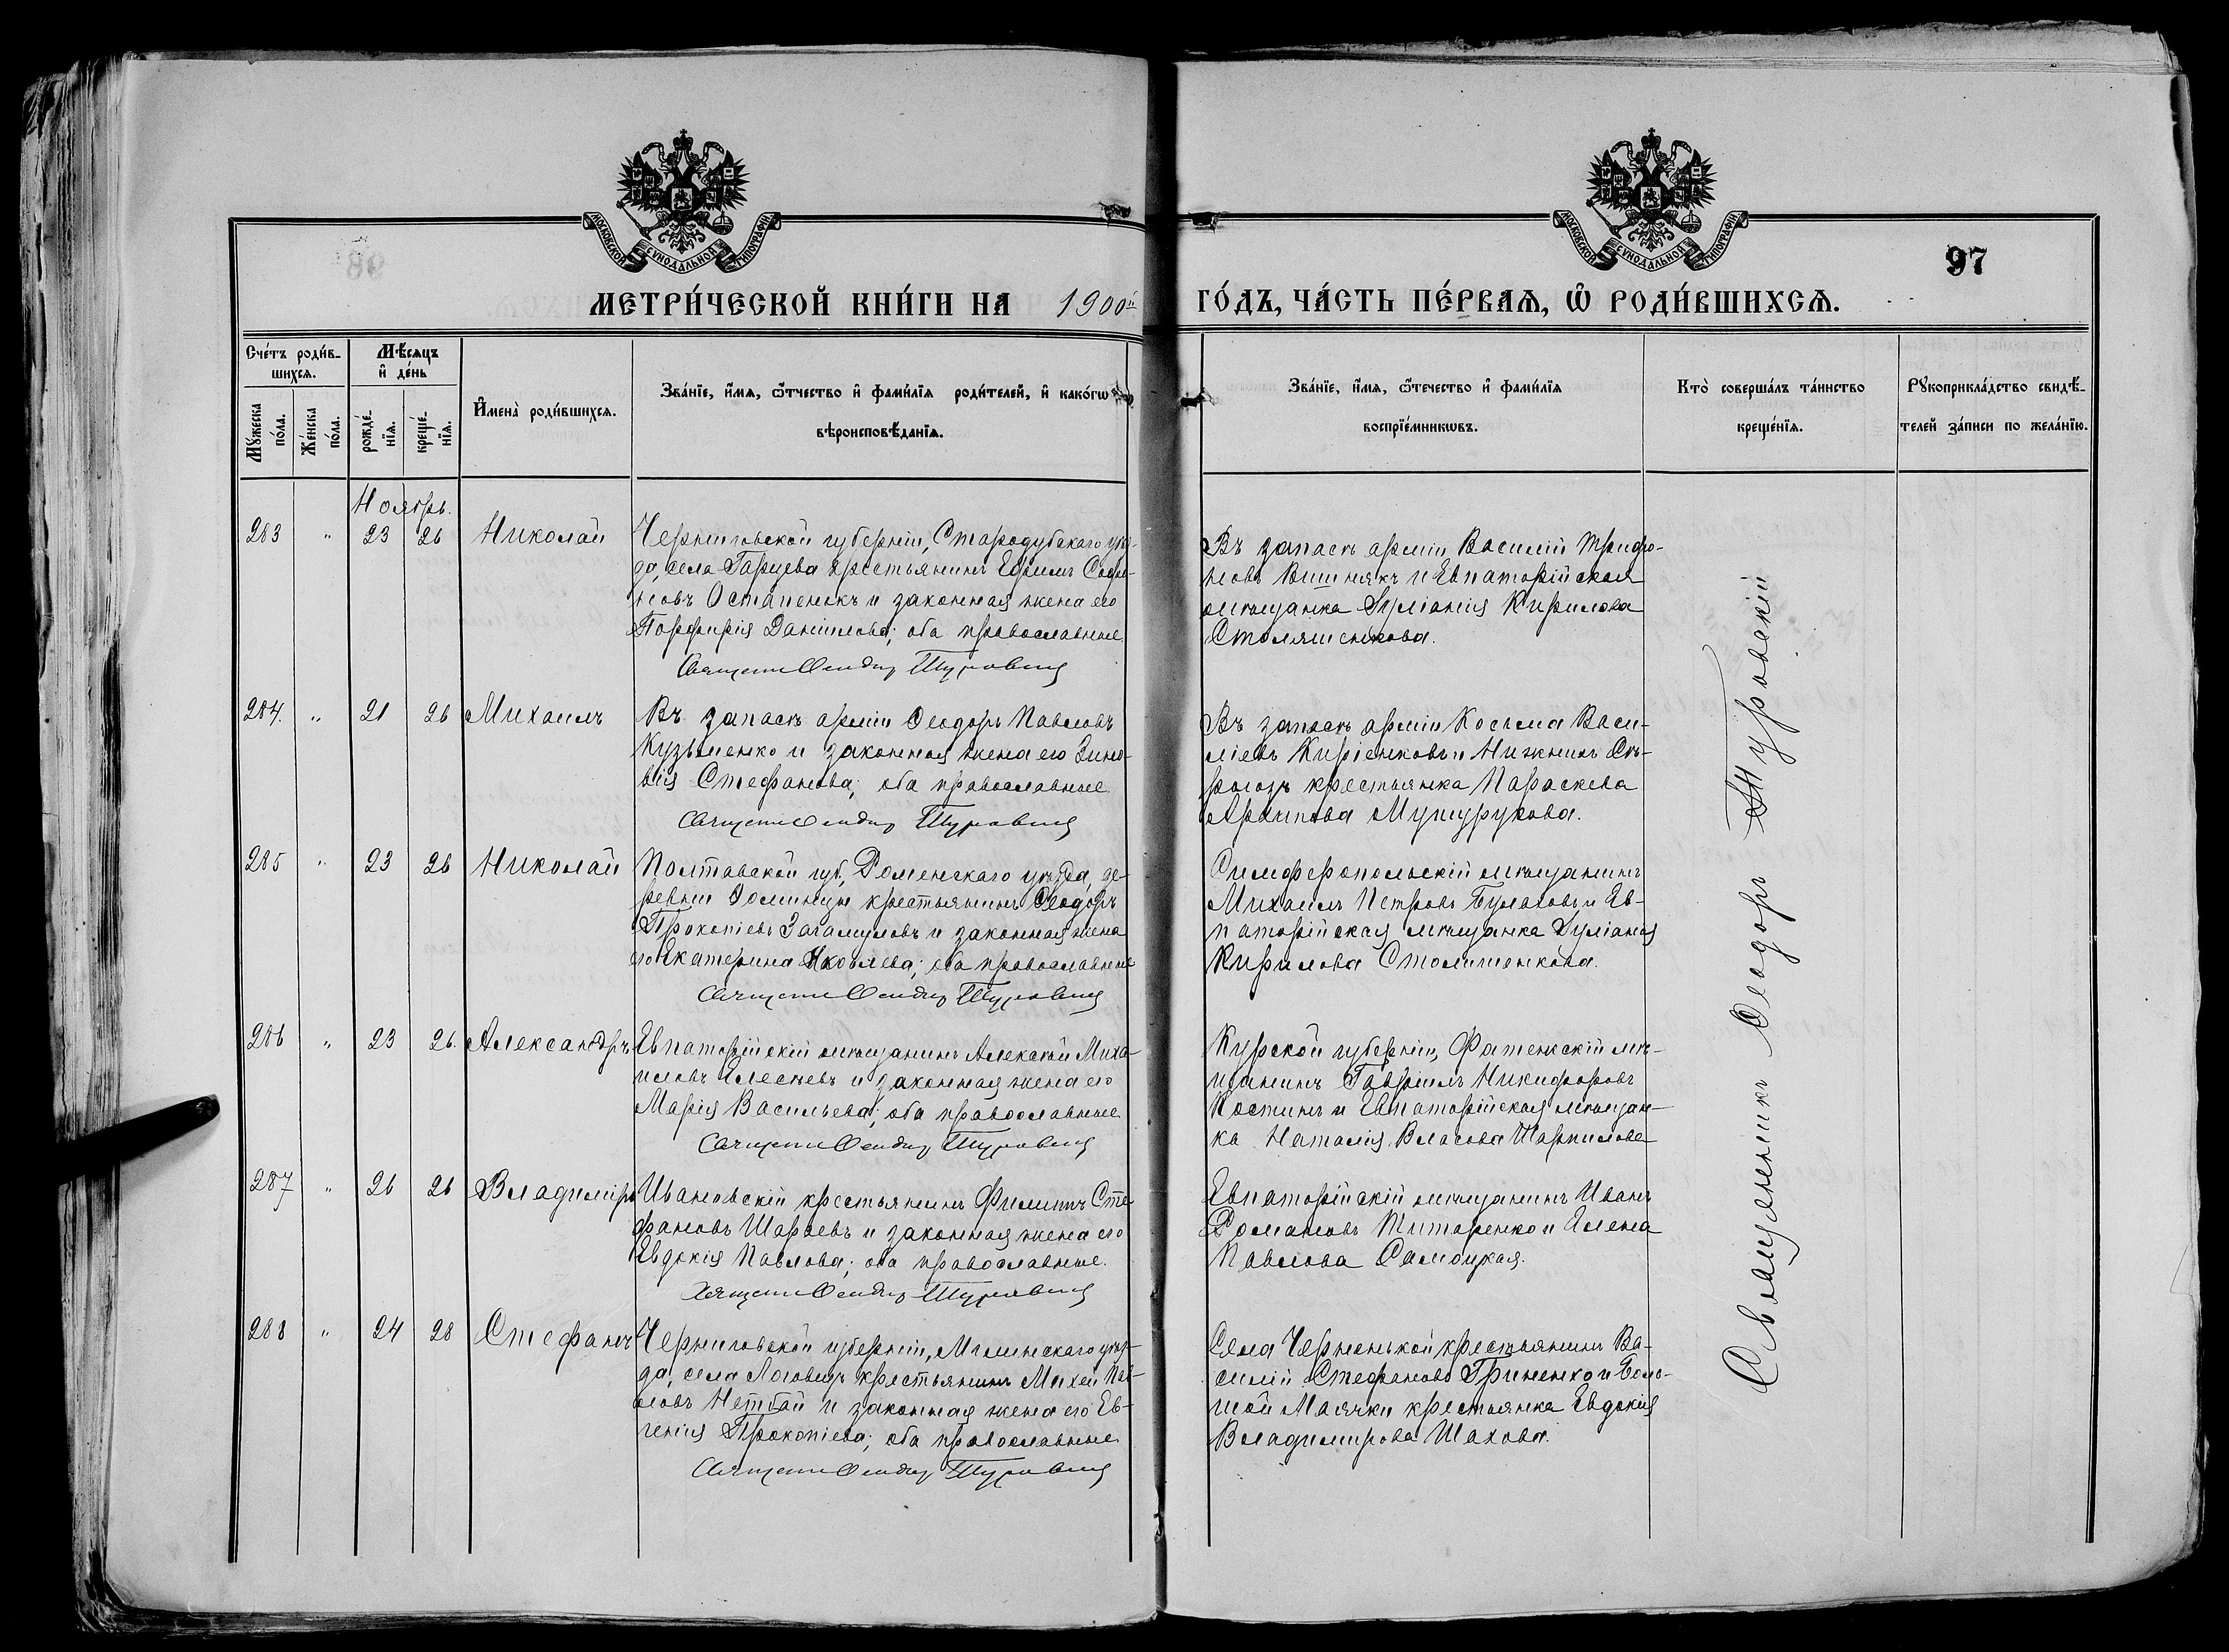 МОСКОВСКОЙ СѴНОДАЛЬНОЙ ТИПОГРАФІИ
МОСКОВСКОЙ СѴНОДАЛЬНОЙ ТИПОГРАФІИ
97
МЕТРИ́ЧЕСКОЙ КНИ́ГИ НА 1900й ГО́ДЪ, ЧА́СТЬ ПЕ́РВАѦ, Ѡ҆ РОДИ́ВШИХСѦ.
Сче́тъ роди́в-
шихсѧ.
Мѣ́сѧцъ
и҆ де́нь
Мꙋ́жеска
по́ла.
Же́нска
по́ла.
рожде́-
нїѧ.
креще́-
нїѧ.
И҆мена̀ роди́вшихсѧ.
Зва́нїе, и҆́мѧ, ѻ҆́тчество и҆ фами́лїѧ роди́телей, и҆ какóгѡ
вѣроисповѣ́данїѧ.
Зва́нїе, и҆́мѧ, ѻ҆те́чество и҆ фами́лїѧ
воспрїе́мникѡвъ.
Кто̀ соверша́лъ та́инство
креще́нїѧ.
Рꙋкоприкла́дство свидѣ́-
телей за́писи по жела́нїю.
Ноябрь.
283 " 23 26 Николай
Черниговской губерніи, Стародубскаго уѣз-
да, села Гарцева крестьянинъ Ефимъ Софро-
новъ Остапенокъ и законная жена его
Порфирія Данилова; оба православные
Священн Ѳеодор Туровскій
Въ запасѣ арміи Василій Трифо-
новъ Вишнякъ и Евпаторійская
мѣщанка Іуліанія Кирилова
Столяшенкова.
284. " 21 26 Михаилъ
Въ запасѣ арміи Ѳеодоръ Павловъ
Кузьменко и законная жена его Зино-
вія Стефанова; оба православные
Священн Ѳеодор Туровскій
Въ запасѣ арміи Косьма Васи-
ліевъ Киріенковъ и Нижнихъ Сѣ-
рогозъ крестьянка Параскева
Архипова
285 " 23 26 Николай
Полтавской губ., Роменскаго уѣзда, де-
ревни крестьянинъ Ѳеодоръ
Прокопіевъ и законная жена
его Екатерина Яковлева; оба православные
Священн Ѳеодор Туровскій
Симферопольскій мѣщанинъ
Михаилъ Петровъ Булаховъ и Ев-
паторійская мѣщанка Іуліанія
Кирилова Столяшенкова.
286 " 23 26. Александръ
Евпаторійскій мѣщанинъ Алексѣй Миха-
иловъ Елесѣевъ и законная жена его
Марія Васильева; оба православные
Священн Ѳеодор Туровскій
Курской губерніи, Фатежскій мѣ-
щанинъ Гавріилъ Никифоровъ
Костинъ и Евпаторійская мѣщан-
ка Наталія Власова Шарпилова
287 " 26 26 Владиміръ
Ивановскій крестьянинъ Филиппъ Сте-
фановъ Шараевъ и законная жена его
Евдокія Павлова; оба православные.
Священн Ѳеодор Туровскій
Евпаторійскій мѣщанинъ Иванъ
Романовъ Титаренко и Елена
Павлова Самоцкая.
288 " 24 28 Стефанъ
Черниговской губерніи, Мглинскаго уѣз-
да, села Логовецъ крестьянинъ Михей Пав-
ловъ Нетбай и законная жена его Ев-
генія Прокопіева; оба православные
Священн Ѳеодор Туровскій
Села Черненькой крестьянинъ Ва-
силій Стефановъ Гриненко и Боль-
шой Маячки крестьянка Евдокія
Владимирова Шахова.
Священникъ Ѳеодоръ Туровскій